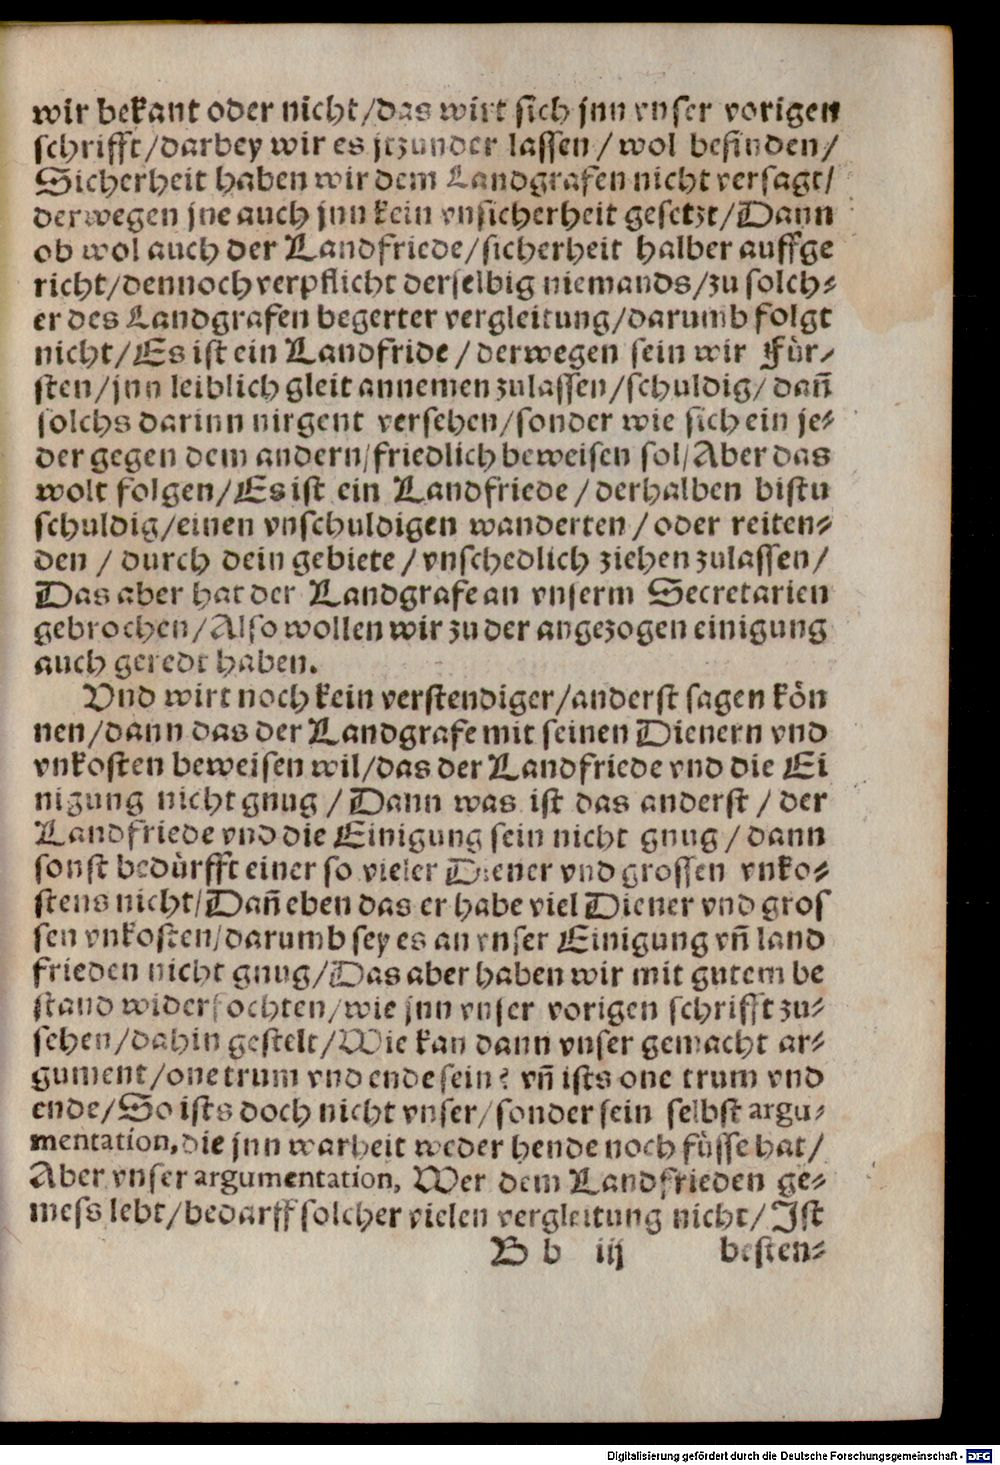 wir bekant oder nicht/das wirt sich jnn vnser vorigen
schrifft/darbey wir es jtzunder lassen/wol befinden/
Sicherheit haben wir dem Landgrafen nicht versagt/
derwegen jne auch jnn kein vnsicherheit gesetzt/Dann
ob wol auch der Landfriede/sicherheit halber auffge
richt/dennoch verpflicht derselbig niemands/zu solch⸗
er des Landgrafen begerter vergleitung/darumb folgt
nicht/Es ist ein Landfride/derwegen sein wir Für⸗
sten/jnn leiblich gleit annemen zulassen/schuldig/dañ
solchs darinn nirgent versehen/sonder wie sich ein je⸗
der gegen dem andern/friedlich beweisen sol/Aber das
wolt folgen/Es ist ein Landfriede/derhalben bistu
schuldig/einen vnschuldigen wanderten/oder reiten⸗
den/durch dein gebiete/vnschedlich ziehen zulassen/
Das aber hat der Landgrafe an vnserm Secretarien
gebrochen/Also wollen wir zu der angezogen einigung
auch geredt haben.
Vnd wirt noch kein verstendiger/anderst sagen kön
nen/dann das der Landgrafe mit seinen Dienern vnd
vnkosten beweisen wil/das der Landfriede vnd die Ei
nigung nicht gnug/Dann was ist das anderst/der
Landfriede vnd die Einigung sein nicht gnug/dann
sonst bedürfft einer so vieler Diener vnd grossen vnko⸗
stens nicht/Dañ eben das er habe viel Diener vnd gros
sen vnkosten/darumb sey es an vnser Einigung vñ land
frieden nicht gnug/Das aber haben wir mit gutem be
stand widerfochten/wie jnn vnser vorigen schrifft zu⸗
sehen/dahin gestelt/Wie kan dann vnser gemacht ar⸗
gument/one trum vnd ende sein? vñ ists one trum vnd
ende/So ists doch nicht vnser/sonder sein selbst argu⸗
mentation, die jnn warheit weder hende noch füsse hat/
Aber vnser argumentation, Wer dem Landfrieden ge⸗
mess lebt/bedarff solcher vielen vergleitung nicht/Ist
B b iij besten⸗
Digitalisierung gefördert durch die Deutsche Forschungsgemeinschaft - DFG